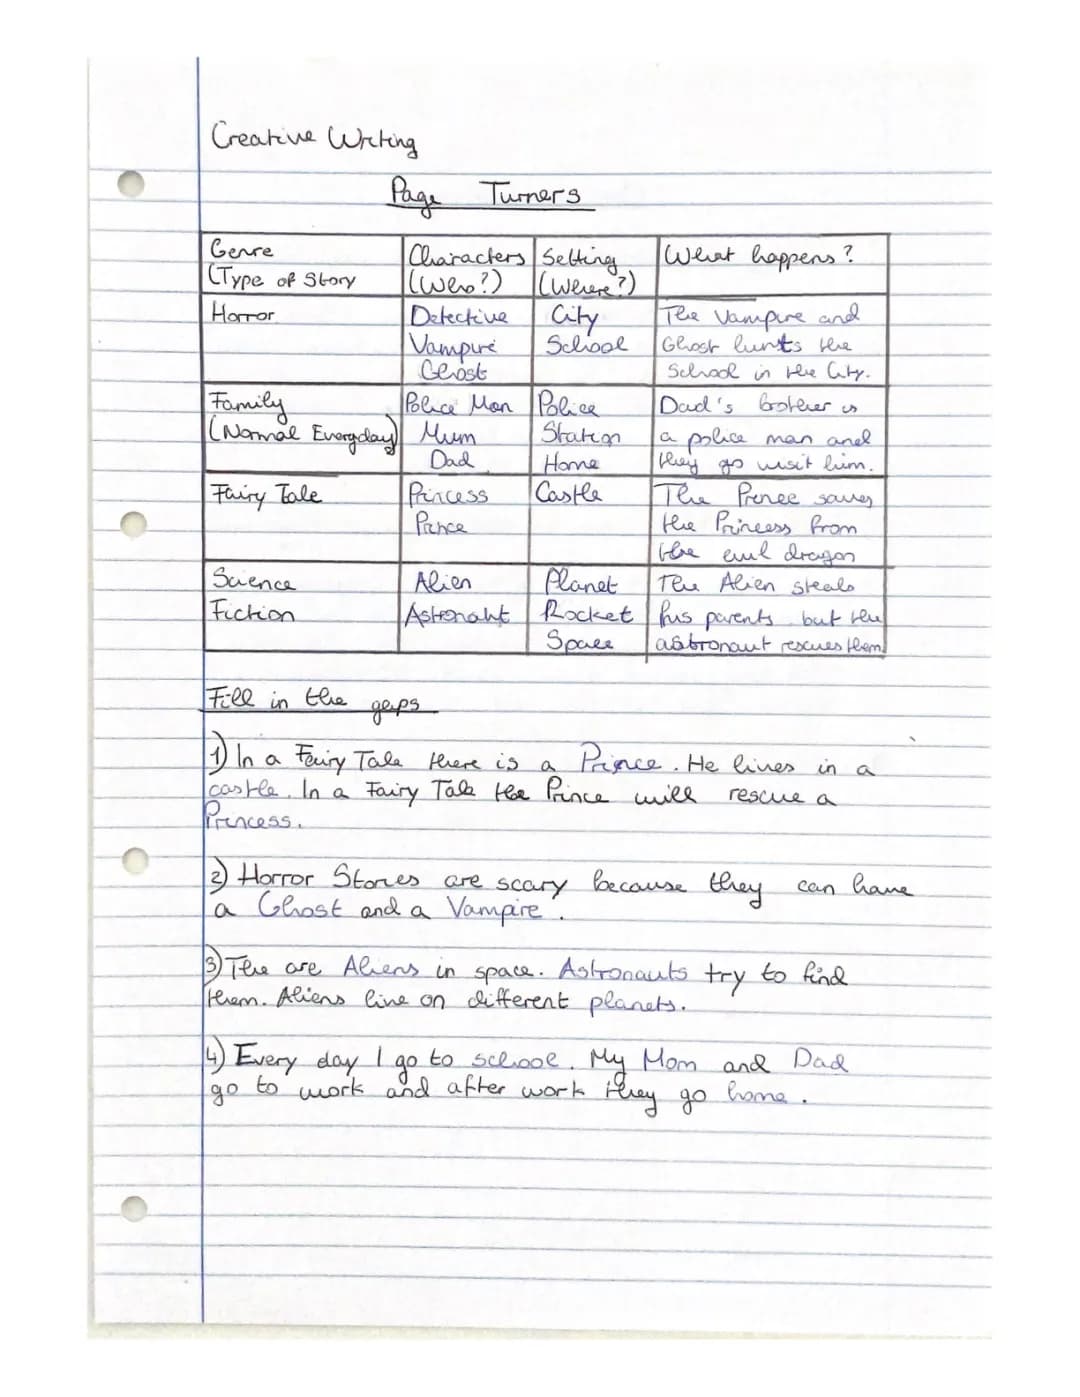 Creative Writing
Page Turners
Genre Characters Setting What happens?
(Type of Story (Who?) (Where?)
Horror Detective City The Vampire and
Vampire School Ghost hunts the
Ghost School in the City.
Family Police Man Police Dad's brother is
(Normal Everyday) Mum Station a police man and
Dad Home they go visit him.
Fairy Tale Princess Castle The Prince saves
Prince the Princess from
the evil dragon
Science Alien Planet The Alien steals
Fiction Astronaht Rocket his parents but the
Space astronaut rescues them.
Fill in the gaps
1) In a Fairy Tale there is a Prince. He lives in a
castle. In a Fairy Tale the Prince will rescue a
Princess.
2) Horror Stories are scary because they can have
a Ghost and a Vampire.
3) The are Aliens in space. Astronauts try to find
them. Aliens live on different planets.
4) Every day I go to school. My Mom and Dad
go to work and after work they go home.